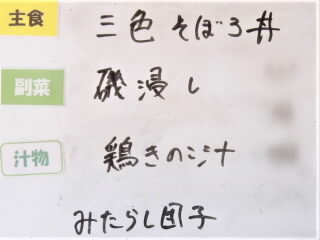 主食 三色そぼろ丼
副菜 磯浸し
汁物 鶏きのこ汁
みたらし団子